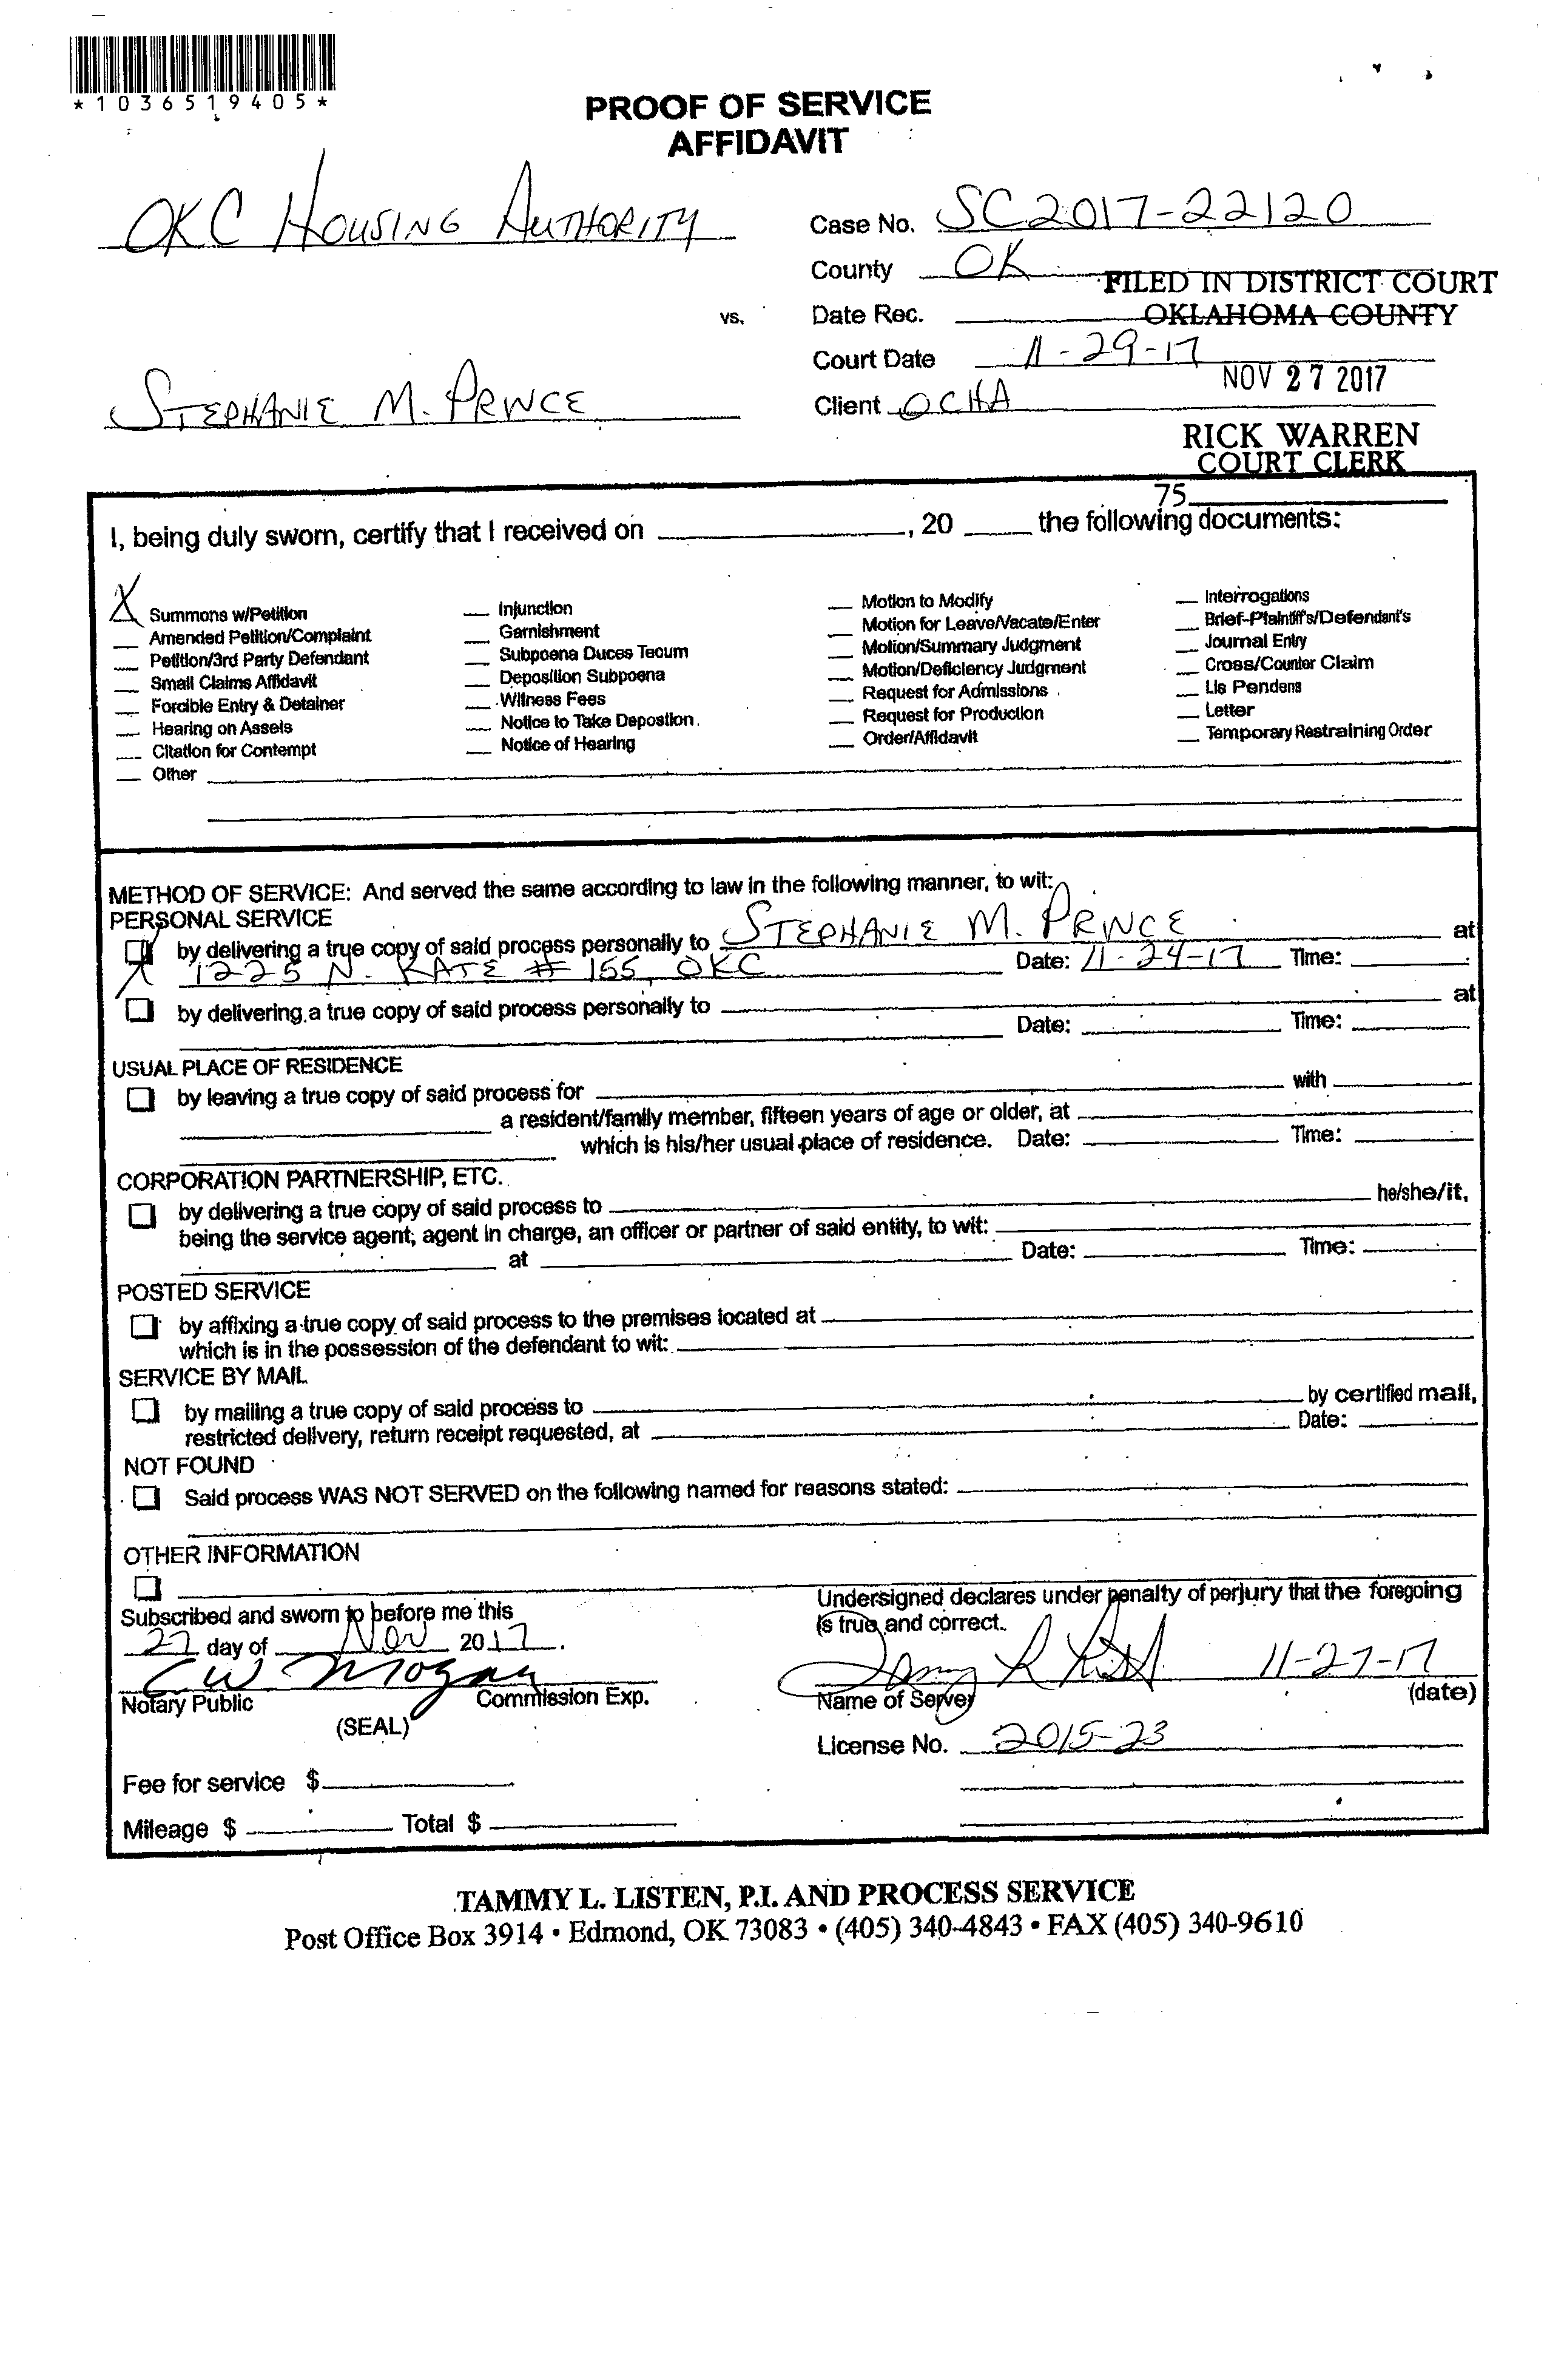 *1036519405*
PROOF OF SERVICE
AFFIDAVIT
OKC HOUSING AUTHORITY
Case No. SC2017-22120
County OK
FILED IN DISTRICT COURT
OKLAHOMA COUNTY
vs.
Date Rec.
Court Date 11-29-17
NOV 27 2017
STEPHANIE M. PRINCE
Client OCHA
RICK WARREN
COURT CLERK
75
I, being duly sworn, certify that I received on , 20 the following documents:
X Summons w/Petition
Amended Petition/Complaint
Petition/3rd Party Defendant
Small Claims Affidavit
Forcible Entry & Detainer
Hearing on Assets
Citation for Contempt
Other
Injunction
Garnishment
Subpoena Duces Tecum
Deposition Subpoena
Witness Fees
Notice to Take Depostion.
Notice of Hearing
Motion to Modify
Motion for Leave/Vacate/Enter
Motion/Summary Judgment
Motion/Deficiency Judgment
Request for Admissions
Request for Production
Order/Affidavit
Interrogations
Brief-Plaintiff's/Defendant's
Journal Entry
Cross/Counter Claim
Lis Pendens
Letter
Temporary Restraining Order
METHOD OF SERVICE: And served the same according to law in the following manner, to wit:
PERSONAL SERVICE
X by delivering a true copy of said process personally to STEPHANIE M. PRINCE at
1225 N. KATE # 155, OKC Date: 11-24-17 Time:
by delivering a true copy of said process personally to at
Date: Time:
USUAL PLACE OF RESIDENCE
by leaving a true copy of said process for with
a resident/family member, fifteen years of age or older, at
which is his/her usual place of residence. Date: Time:
CORPORATION PARTNERSHIP, ETC.
by delivering a true copy of said process to he/she/it,
being the service agent, agent in charge, an officer or partner of said entity, to wit:
at Date: Time:
POSTED SERVICE
by affixing a true copy of said process to the premises located at
which is in the possession of the defendant to wit:
SERVICE BY MAIL
by mailing a true copy of said process to by certified mail,
restricted delivery, return receipt requested, at Date:
NOT FOUND
Said process WAS NOT SERVED on the following named for reasons stated:
OTHER INFORMATION
Subscribed and sworn to before me this
27 day of Nov 2017.
CW Mogan
Notary Public Commission Exp.
(SEAL)
Undersigned declares under penalty of perjury that the foregoing
is true and correct.
11-27-17
Name of Server (date)
License No. 2015-23
Fee for service $
Mileage $ Total $
TAMMY L. LISTEN, P.I. AND PROCESS SERVICE
Post Office Box 3914 • Edmond, OK 73083 • (405) 340-4843 • FAX (405) 340-9610